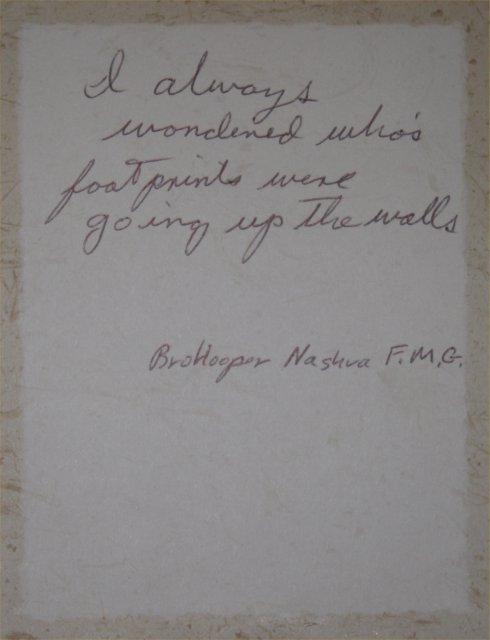 I always
wondered who's
footprints were
going up the walls
BroHooper Nashua F.M.G.